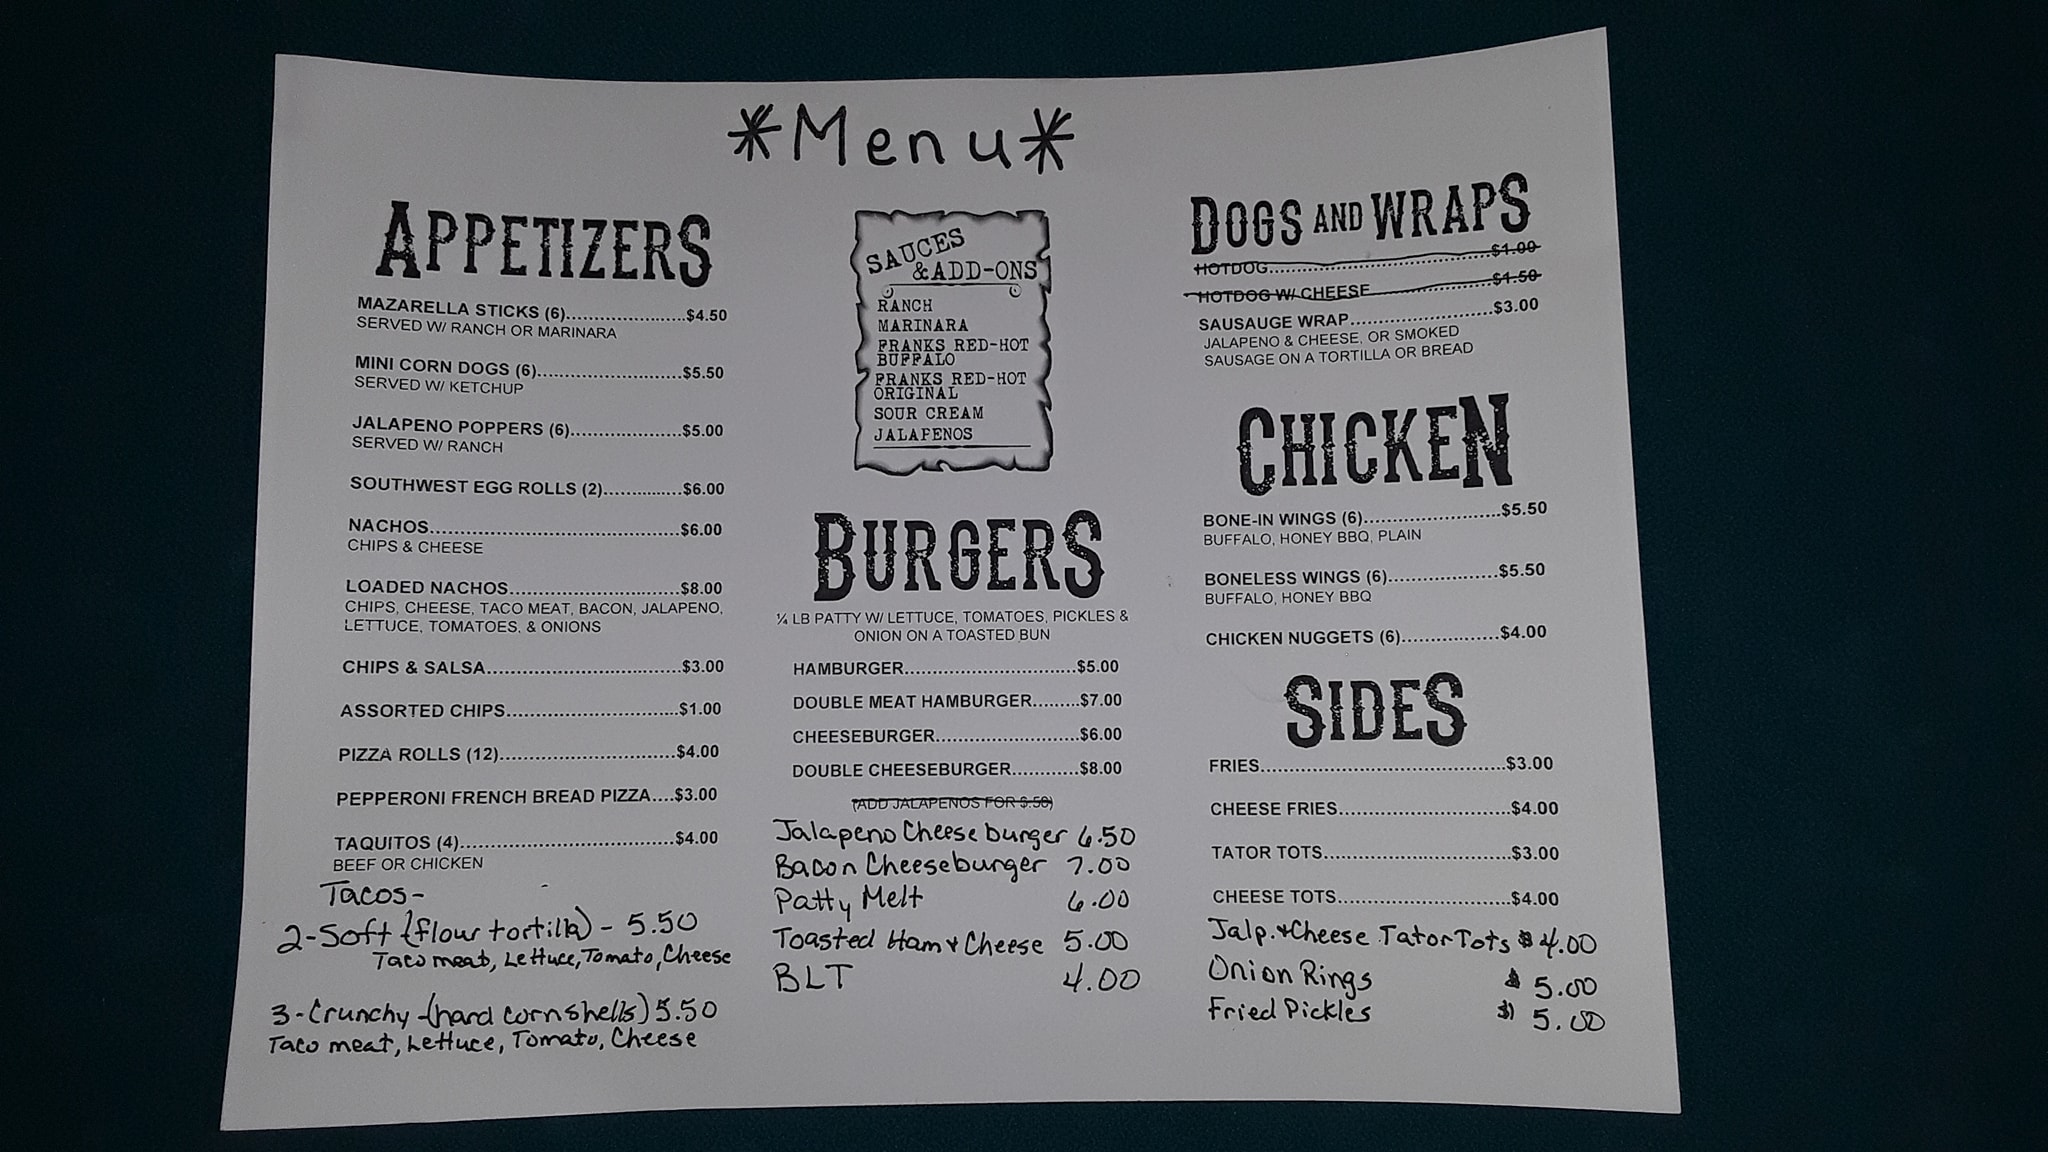 *Menu*
APPETIZERS
MAZARELLA STICKS (6)........................$4.50
SERVED W/ RANCH OR MARINARA
MINI CORN DOGS (6)........................$5.50
SERVED W/ KETCHUP
JALAPENO POPPERS (6)...................$5.00
SERVED W/ RANCH
SOUTHWEST EGG ROLLS (2).............$6.00
NACHOS..........................................$6.00
CHIPS & CHEESE
LOADED NACHOS.............................$8.00
CHIPS, CHEESE, TACO MEAT, BACON, JALAPENO,
LETTUCE, TOMATOES, & ONIONS
CHIPS & SALSA.................................$3.00
ASSORTED CHIPS.............................$1.00
PIZZA ROLLS (12)..............................$4.00
PEPPERONI FRENCH BREAD PIZZA....$3.00
TAQUITOS (4)....................................$4.00
BEEF OR CHICKEN
Tacos-
2-Soft (flour tortilla) - 5.50
Taco meat, Lettuce, Tomato, Cheese
3-Crunchy-(hard corn shells) 5.50
Taco meat, Lettuce, Tomato, Cheese
SAUCES
& ADD-ONS
RANCH
MARINARA
FRANKS RED-HOT
BUFFALO
FRANKS RED-HOT
ORIGINAL
SOUR CREAM
JALAPENOS
BURGERS
¼ LB PATTY W/ LETTUCE, TOMATOES, PICKLES &
ONION ON A TOASTED BUN
HAMBURGER.............................$5.00
DOUBLE MEAT HAMBURGER.........$7.00
CHEESEBURGER........................$6.00
DOUBLE CHEESEBURGER............$8.00
(ADD JALAPENOS FOR $.50)
Jalapeno Cheeseburger 6.50
Bacon Cheeseburger 7.00
Patty Melt 6.00
Toasted Ham + Cheese 5.00
BLT 4.00
DOGS AND WRAPS
HOTDOG.....................................$1.00
HOTDOG W/ CHEESE.....................$1.50
SAUSAUGE WRAP........................$3.00
JALAPENO & CHEESE, OR SMOKED
SAUSAGE ON A TORTILLA OR BREAD
CHICKEN
BONE-IN WINGS (6).......................$5.50
BUFFALO, HONEY BBQ, PLAIN
BONELESS WINGS (6)...................$5.50
BUFFALO, HONEY BBQ
CHICKEN NUGGETS (6)................$4.00
SIDES
FRIES.........................................$3.00
CHEESE FRIES.............................$4.00
TATOR TOTS...............................$3.00
CHEESE TOTS.............................$4.00
Jalp. + Cheese Tator Tots $4.00
Onion Rings $ 5.00
Fried Pickles $ 5.00